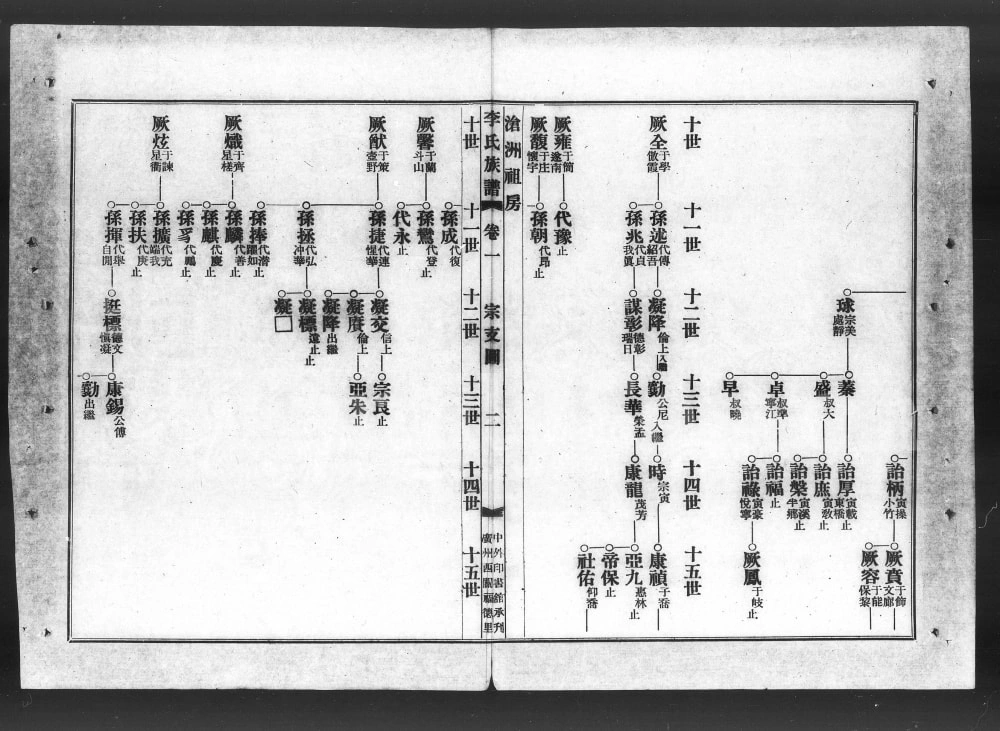 十世
十一世
十二世
十三世
十四世
十五世
球 宗美 處靜
蓁
盛 叔大
卓 叔犖 寧江
早 叔曉
詒柄 寅操 小竹
詒厚 寅載 東橋 止
詒庶 寅敦 止
詒槃 寅溪 半鄉 止
詒福 止
詒祿 寅豪 悅寧
厥賁 于飾 文廊
厥容 于能 保黎
厥鳳 于岐 止
厥全 于學 倣霞
孫述 代傳 紹吾
孫兆 代貞 我眞
凝降 倫上 入繼
謀彰 德彰 瑞日
勷 公尼 入繼
長華 榮孟
時 宗寅
康龍 茂芳
康禎 子喬
亞九 惠林 止
帝保 止
社佑 仰喬
厥雍 于簡 遂南
代豫 止
厥馥 于庄 懷宇
孫朝 代昂 止
滄洲祖房
李氏族譜 卷一 宗支圖 二
中外印書館承刊
廣州西關福德里
十世
十一世
十二世
十三世
十四世
十五世
孫成 代復
厥馨 于蘭 斗山
孫鸞 代登 止
代永 止
厥猷 于策 壺野
孫捷 代連 惺華
孫拯 代弘 冲華
孫捧 代潛 闇如 止
凝交 信上
凝賡 倫上
凝降 出繼
凝標 遠止 止
凝囗
宗良 止
亞朱 止
厥熾 于齊 星槎
孫麟 代善 止
孫麒 代慶 止
孫豸 代鳳 止
厥炫 于諫 星衢
孫擴 代充 端我
孫扶 代庚 止
孫揮 代舉 自開
挺標 德文 慎凝
康錫 公傅
勷 出繼